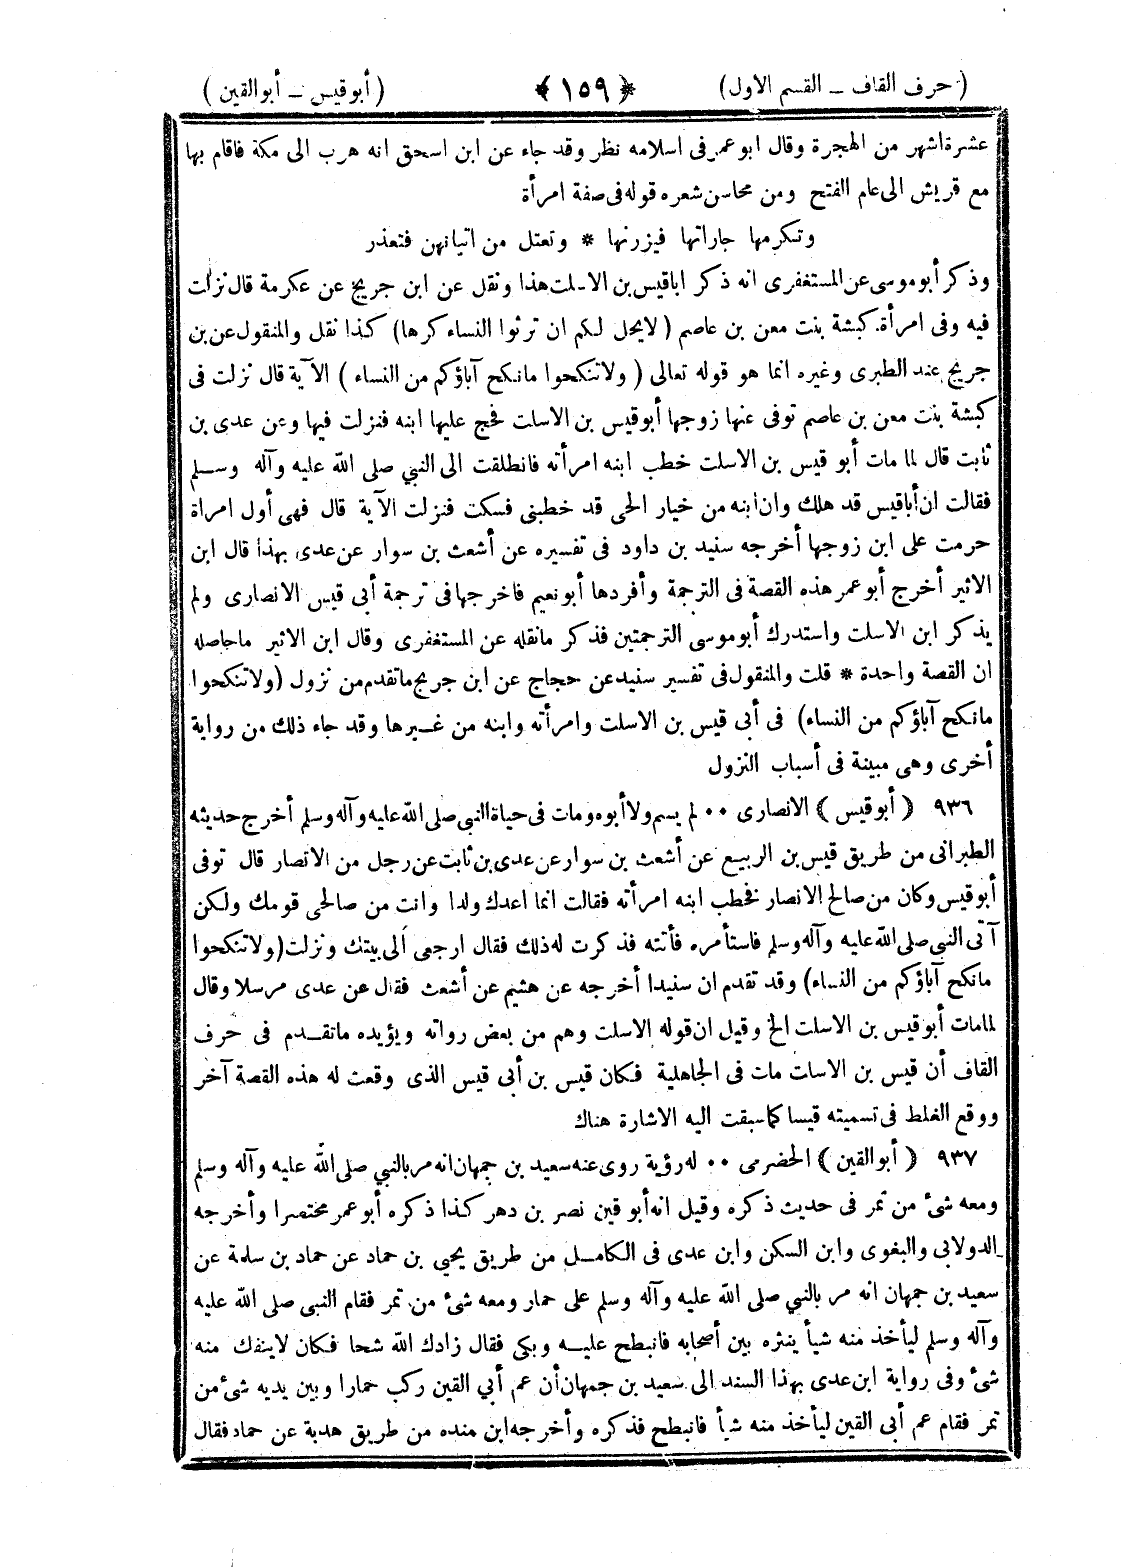 ( حرف القاف ـ القسم الاول ) ﴿ ١٥٩ ﴾ ( أبوقيس ـ أبوالقين )
عشرة اشهر من الهجرة وقال ابو عمر فى اسلامه نظر وقد جاء عن ابن اسحق انه هرب الى مكة فاقام بها
مع قريش الى عام الفتح ومن محاسن شعره قوله فى صفة امرأة
وتكرمها جاراتها فيزرنها * وتعتل من اتيانهن فتعذر
وذكر أبو موسى عن المستغفرى انه ذكر اباقيس بن الاسلت هذا ونقل عن ابن جريج عن عكرمة قال نزلت
فيه وفى امرأة كبشة بنت معن بن عاصم ( لايحل لكم ان ترثوا النساء كرها ) كذا نقل والمنقول عن بن
جريج عند الطبرى وغيره انما هو قوله تعالى ( ولاتنكحوا مانكح آباؤكم من النساء ) الآية قال نزلت فى
كبشة بنت معن بن عاصم توفى عنها زوجها أبوقيس بن الاسلت فجح عليها ابنه فنزلت فيها وعن عدى بن
ثابت قال لما مات أبو قيس بن الاسلت خطب ابنه امرأته فانطلقت الى النبي صلى الله عليه وآله وسلم
فقالت ان أباقيس قد هلك وان ابنه من خيار الحى قد خطبنى فسكت فنزلت الآية قال فهى أول امراة
حرمت على ابن زوجها أخرجه سنيد بن داود فى تفسيره عن أشعث بن سوار عن عدى بهذا قال ابن
الاثير أخرج أبو عمر هذه القصة فى الترجمة وأفردها أبو نعيم فاخرجها فى ترجمة أبى قيس الانصارى ولم
يذكر ابن الاسلت واستدرك أبوموسى الترجمتين فذكر مانقله عن المستغفرى وقال ابن الاثير ماحاصله
ان القصة واحدة * قلت والمنقول فى تفسير سنيد عن حجاج عن ابن جريج ماتقدم من نزول ( ولاتنكحوا
مانكح آباؤكم من النساء ) فى أبى قيس بن الاسلت وامرأته وابنه من غيرها وقد جاء ذلك من رواية
أخرى وهى مبينة فى أسباب النزول
٩٣٦ ( أبوقيس ) الانصارى ٠٠ لم يسم ولا أبوه ومات فى حياة النبى صلى الله عليه وآله وسلم أخرج حديثه
الطبرانى من طريق قيس بن الربيع عن أشعث بن سوار عن عدى بن ثابت عن رجل من الانصار قال توفى
أبوقيس وكان من صالح الانصار فخطب ابنه امرأته فقالت انما اعدك ولدا وانت من صالحى قومك ولكن
آتى النبى صلى الله عليه وآله وسلم فاستأمره فأتته فذكرت له ذلك فقال ارجعى الى بيتك ونزلت ( ولاتنكحوا
مانكح آباؤكم من النساء ) وقد تقدم ان سنيدا أخرجه عن هشيم عن أشعث فقال عن عدى مرسلا وقال
لما مات أبوقيس بن الاسلت الخ وقيل ان قوله الاسلت وهم من بعض رواته ويؤيده ماتقدم فى حرف
القاف أن قيس بن الاسلت مات فى الجاهلية فكان قيس بن أبى قيس الذى وقعت له هذه القصة آخر
ووقع الغلط فى تسميته قيسا كما سبقت اليه الاشارة هناك
٩٣٧ ( أبوالقين ) الحضرمى ٠٠ له رؤية روى عنه سعيد بن جمهان انه مر بالنبي صلى الله عليه وآله وسلم
ومعه شئ من تمر فى حديث ذكره وقيل انه أبو قين نصر بن دهر كذا ذكره أبو عمر مختصرا وأخرجه
الدولابى والبغوى وابن السكن وابن عدى فى الكامل من طريق يحيى بن حماد عن حماد بن سلمة عن
سعيد بن جمهان انه مر بالنبي صلى الله عليه وآله وسلم على حمار ومعه شئ من تمر فقام النبى صلى الله عليه
وآله وسلم ليأخذ منه شيأ ينثره بين أصحابه فانبطح عليه وبكى فقال زادك الله شحا فكان لاينفك منه
شئ وفى رواية ابن عدى بهذا السند الى سعيد بن جمهان أن عم أبي القين ركب حمارا وبين يديه شئ من
تمر فقام عم أبى القين ليأخذ منه شيأ فانبطح فذكره وأخرجه ابن منده من طريق هدبة عن حماد فقال